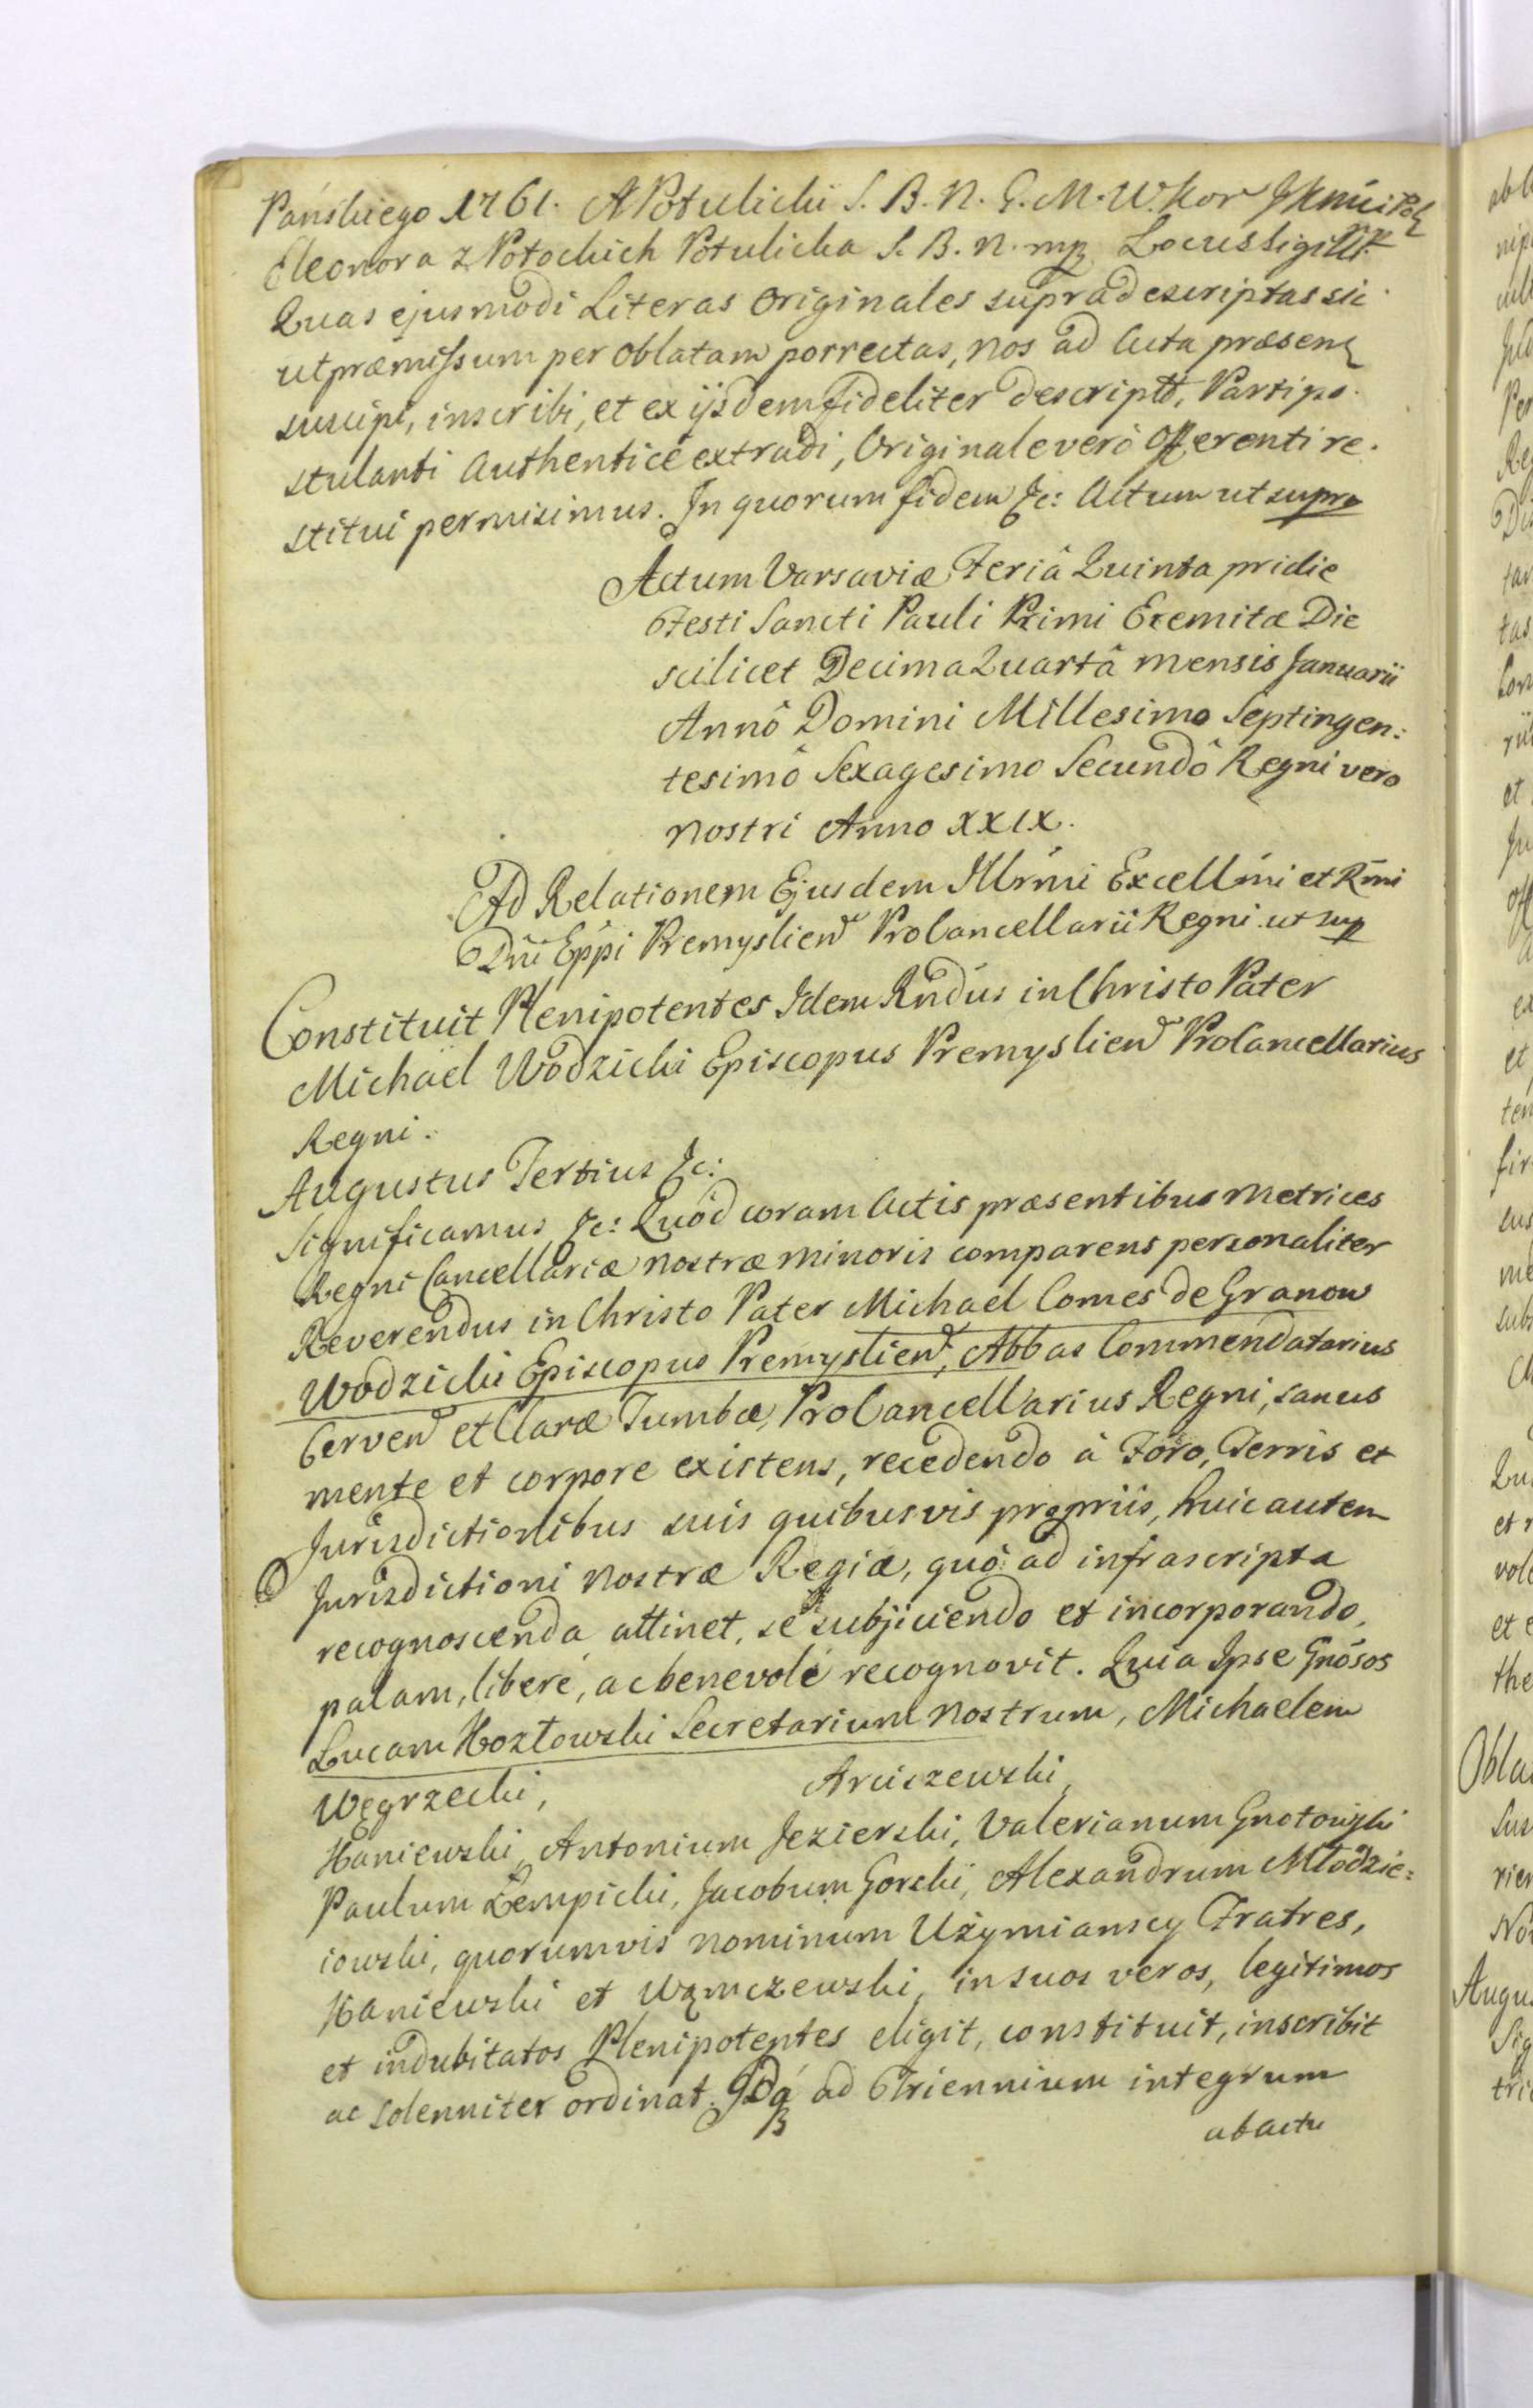 Pańskiego 1761. A Potulicki S. B. N. G. M. W. Kor
Eleonora z Potockich Potulicka S. B. N. mp Locus Sigilli
Quas ejusmodi Literas Originales supradescriptas sic
ut præmissum per Oblatam porrectas, nos ad Acta præsen
suscipi, inscribi, et ex ijsdem fideliter descriptt, Parti po-
stulanti Authenticè extradi, Originale verò Offerenti re-
stitui permisimus. In quorum fidem &c: Actum ut supra
Actum Varsaviæ Feriâ Quinta pridie
Festi Sancti Pauli Primi Eremitæ Die
scilicet Decima Quartâ mensis Januarii
Annô Domini Millesimo Septingen:
tesimô Sexagesimo Secundô Regni vero
nostri Anno XXIX.
Ad Relationem Ejusdem Illrmi Excellmi et Rmi
Dni Eppi Premyslien Procancellarii Regni ut sup
Constituit Plenipotentes Idem Rndus in Christo Pater
Michael Wodzicki Episcopus Premyslien Procancellarius
Regni.
Augustus Tertius &c:
Significamus &c: Quòd coram Actis præsentibus Metrices
Regni Cancellariæ nostræ minoris comparens personaliter
Reverendus in Christo Pater Michael Comes de Granow
Wodzicki Episcopus Premyslien, Abbas Commendatarius
Cerven et Claræ Tumbæ, Procancellarius Regni, sanus
mente et corpore existens, recedendo à Foro, Terris et
Jurisdictionibus suis quibusvis propriis, huic autem
Jurisdictioni nostræ Regiæ, quò ad infrascripta
recognoscenda attinet, se subjiciendo et incorporando,
palam, liberè, ac benevolè recognovit. Quia Ipse Gnosos
Lucam Kozłowski Secretarium nostrum, Michaelem
Węgrzecki, Arciszewski,
Haniewski, Antonium Jezierski, Valerianum Gnotowski
Paulum Łempicki, Jacobum Gorski, Alexandrum Młodzie=
iowski, quorumvis nominum Użymianscy Fratres,
Haniewski et Wąmczewski, in suos veros, legitimos
et indubitatos Plenipotentes eligit, constituit, inscribit
ac solenniter ordinat. ad Triennium integrum
ab actu